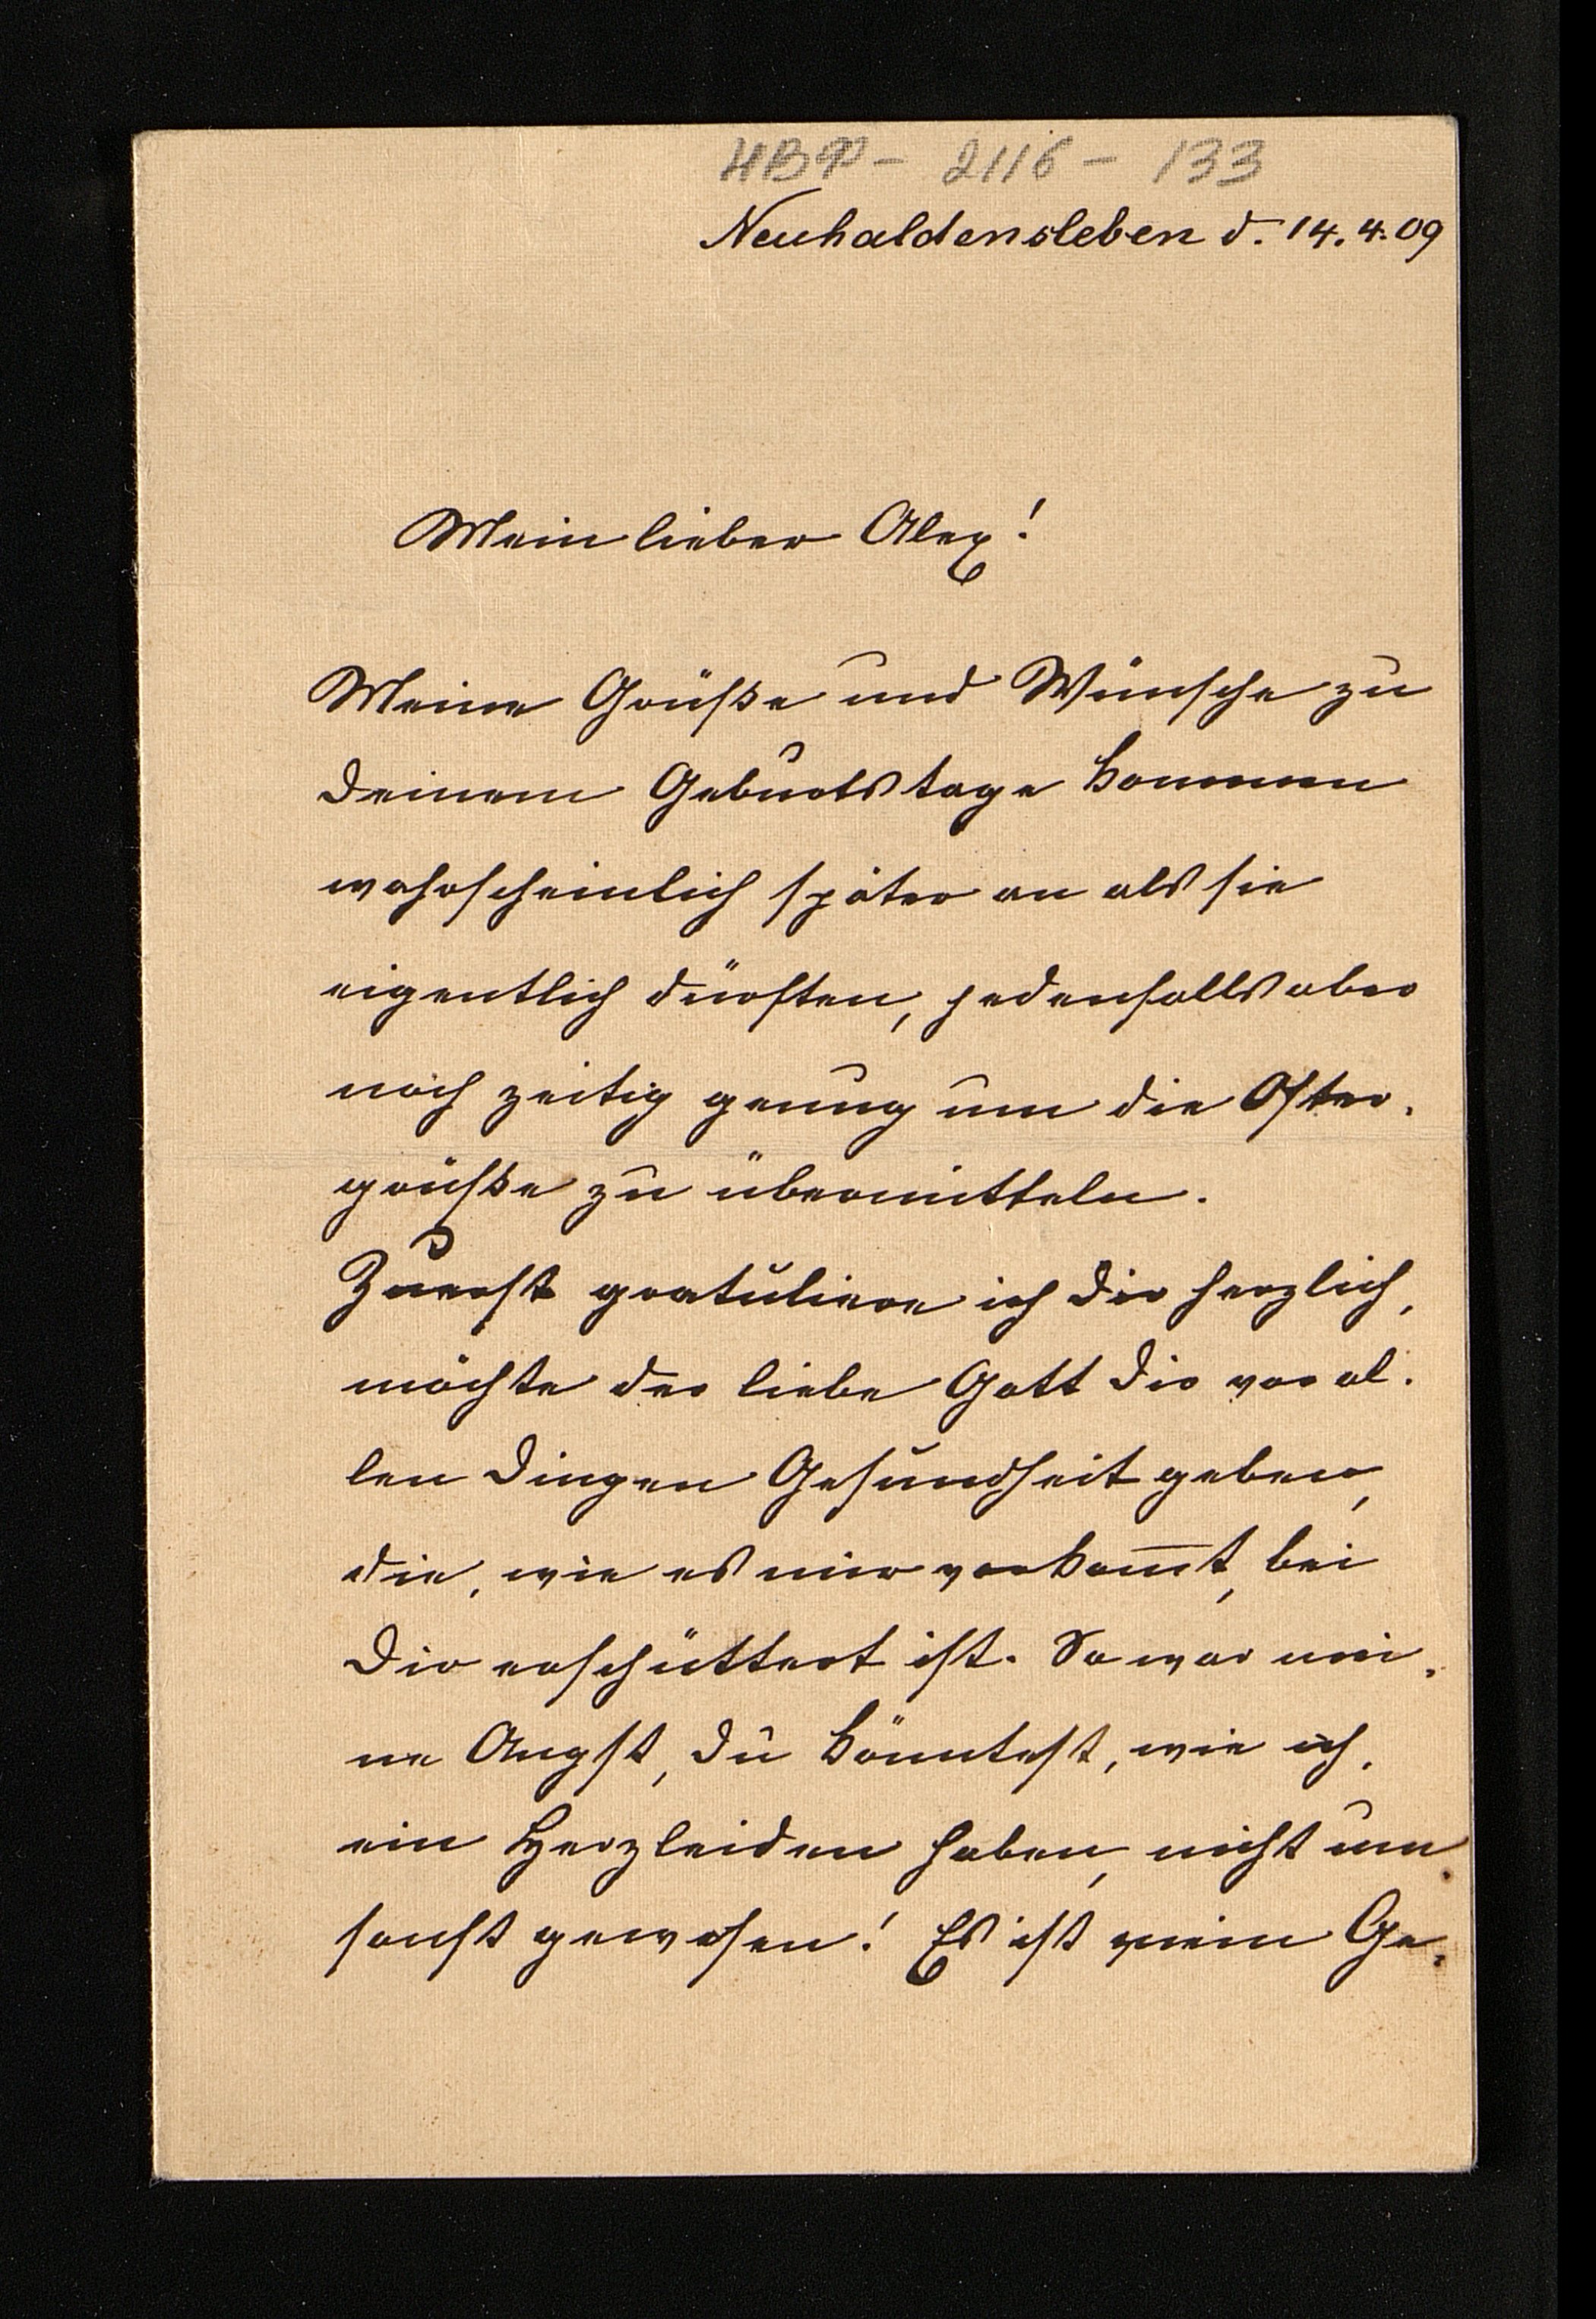 НВФ - 2116 - 133
Neuhaldensleben d. 14. 4. 09
Mein lieber Alex!
Meine Grüße und Wünsche zu
Deinem Geburtstage kommen
wahrscheinlich später an als sie
eigentlich dürften, jedenfalls aber
noch zeitig genug um die Oster-
grüße zu übermitteln.
Zuerst gratuliere ich Dir herzlich,
möchte der liebe Gott Dir vor al-
len Dingen Gesundheit geben,
die, wie es mir vorkom̅t, bei
Dir erschüttert ist. So war mei-
ne Angst, Du könntest, wie ich,
ein Herzleiden haben, nicht um-
sonst gewesen! Es ist mein Ge-